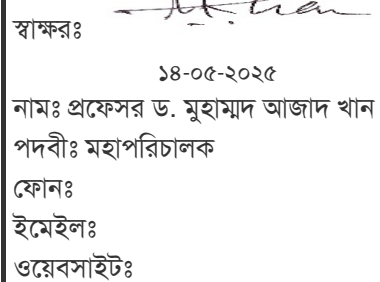 স্বাক্ষরঃ
১৪-০৫-২০২৫
নামঃ প্রফেসর ড. মুহাম্মদ আজাদ খান
পদবীঃ মহাপরিচালক
ফোনঃ
ইমেইলঃ
ওয়েবসাইটঃ